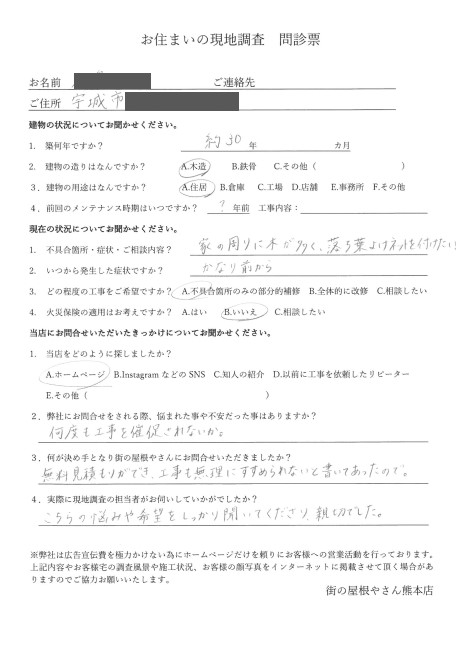 お住まいの現地調査　問診票
お名前　　ご連絡先
ご住所　宇城市
建物の状況についてお聞かせください。
1.　築何年ですか？　約30　年　　カ月
2.　建物の造りはなんですか？　A.木造　B.鉄骨　C.その他（　　　）
3．建物の用途はなんですか？　A.住居　B.倉庫　C.工場　D.店舗　E.事務所　F.その他
4．前回のメンテナンス時期はいつですか？　?　年前　工事内容：
現在の状況についてお聞かせください。
1.　不具合箇所・症状・ご相談内容？　家の周りに木が多く、落ち葉よけネットを付けたい
2.　いつから発生した症状ですか？　かなり前から
3.　どの程度の工事をご希望ですか？　A.不具合箇所のみの部分的補修　B.全体的に改修　C.相談したい
4.　火災保険の適用はお考えですか？　A.はい　B.いいえ　C.相談したい
当店にお問合せいただいたきっかけについてお聞かせください。
1.　当店をどのように探しましたか？
A.ホームページ　B.Instagram などの SNS　C.知人の紹介　D.以前に工事を依頼したリピーター
E.その他（　　　）
2．弊社にお問合せをされる際、悩まれた事や不安だった事はありますか？
何度も工事を催促されないか。
3．何が決め手となり街の屋根やさんにお問合せいただきましたか？
無料見積もりができ、工事も無理にすすめられないと書いてあったので。
4．実際に現地調査の担当者がお伺いしていかがでしたか？
こちらの悩みや希望をしっかり聞いてくださり、親切でした。
※弊社は広告宣伝費を極力かけない為にホームページだけを頼りにお客様への営業活動を行っております。
上記内容やお客様宅の調査風景や施工状況、お客様の顔写真をインターネットに掲載させて頂く場合があ
りますのでご協力お願いいたします。
街の屋根やさん熊本店